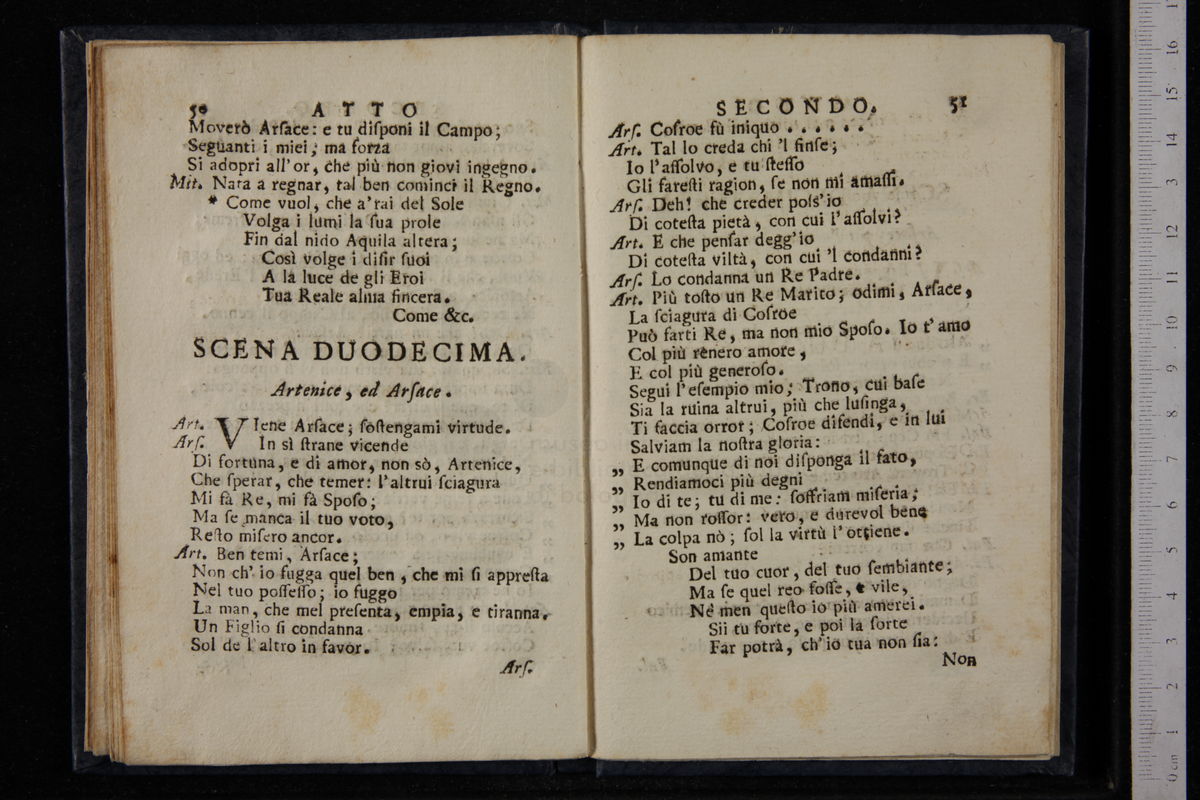 50 ATTO
Moverò Arſace: e tu diſponi il Campo;
Seguanti i miei; ma forza
Si adopri all'or, che più non giovi ingegno.
Mit. Nata a regnar, tal ben cominci il Regno.
* Come vuol, che a'rai del Sole
Volga i lumi la ſua prole
Fin dal nido Aquila altera;
Così volge i diſir ſuoi
A la luce de gli Eroi
Tua Reale alma ſincera.
Come &c.
SCENA DUODECIMA.
Artenice, ed Arſace.
Art. VIene Arſace; ſoſtengami virtude.
Arſ. In sì ſtrane vicende
Di fortuna, e di amor, non sò, Artenice,
Che ſperar, che temer: l'altrui ſciagura
Mi fà Re, mi fà Spoſo;
Ma ſe manca il tuo voto,
Reſto miſero ancor.
Art. Ben temi, Arſace;
Non ch' io fugga quel ben, che mi ſi appreſta
Nel tuo poſſeſſo; io fuggo
La man, che mel preſenta, empia, e tiranna.
Un Figlio ſi condanna
Sol de l'altro in favor.
Arſ.
SECONDO. 51
Arſ. Coſroe fù iniquo . . . . . .
Art. Tal lo creda chi 'l finſe;
Io l'aſſolvo, e tu ſteſſo
Gli fareſti ragion, ſe non mi amaſſi.
Arſ. Deh! che creder poſs'io
Di coteſta pietà, con cui l'aſſolvi?
Art. E che penſar degg'io
Di coteſta viltà, con cui 'l condanni?
Arſ. Lo condanna un Re Padre.
Art. Più toſto un Re Marito; odimi, Arſace,
La ſciagura di Coſroe
Può farti Re, ma non mio Spoſo. Io t'amo
Col più tenero amore,
E col più generoſo.
Segui l'eſempio mio; Trono, cui baſe
Sia la ruina altrui, più che luſinga,
Ti faccia orror; Coſroe difendi, e in lui
Salviam la noſtra gloria:
„ E comunque di noi diſponga il fato,
„ Rendiamoci più degni
„ Io di te; tu di me: ſoffriam miſeria;
„ Ma non roſſor: vero, e durevol bene
„ La colpa nò; ſol la virtù l'ottiene.
Son amante
Del tuo cuor, del tuo ſembiante;
Ma ſe quel reo foſſe, e vile,
Nè men queſto io più amerei.
Sii tu forte, e poi la ſorte
Far potrà, ch'io tua non ſia:
Non